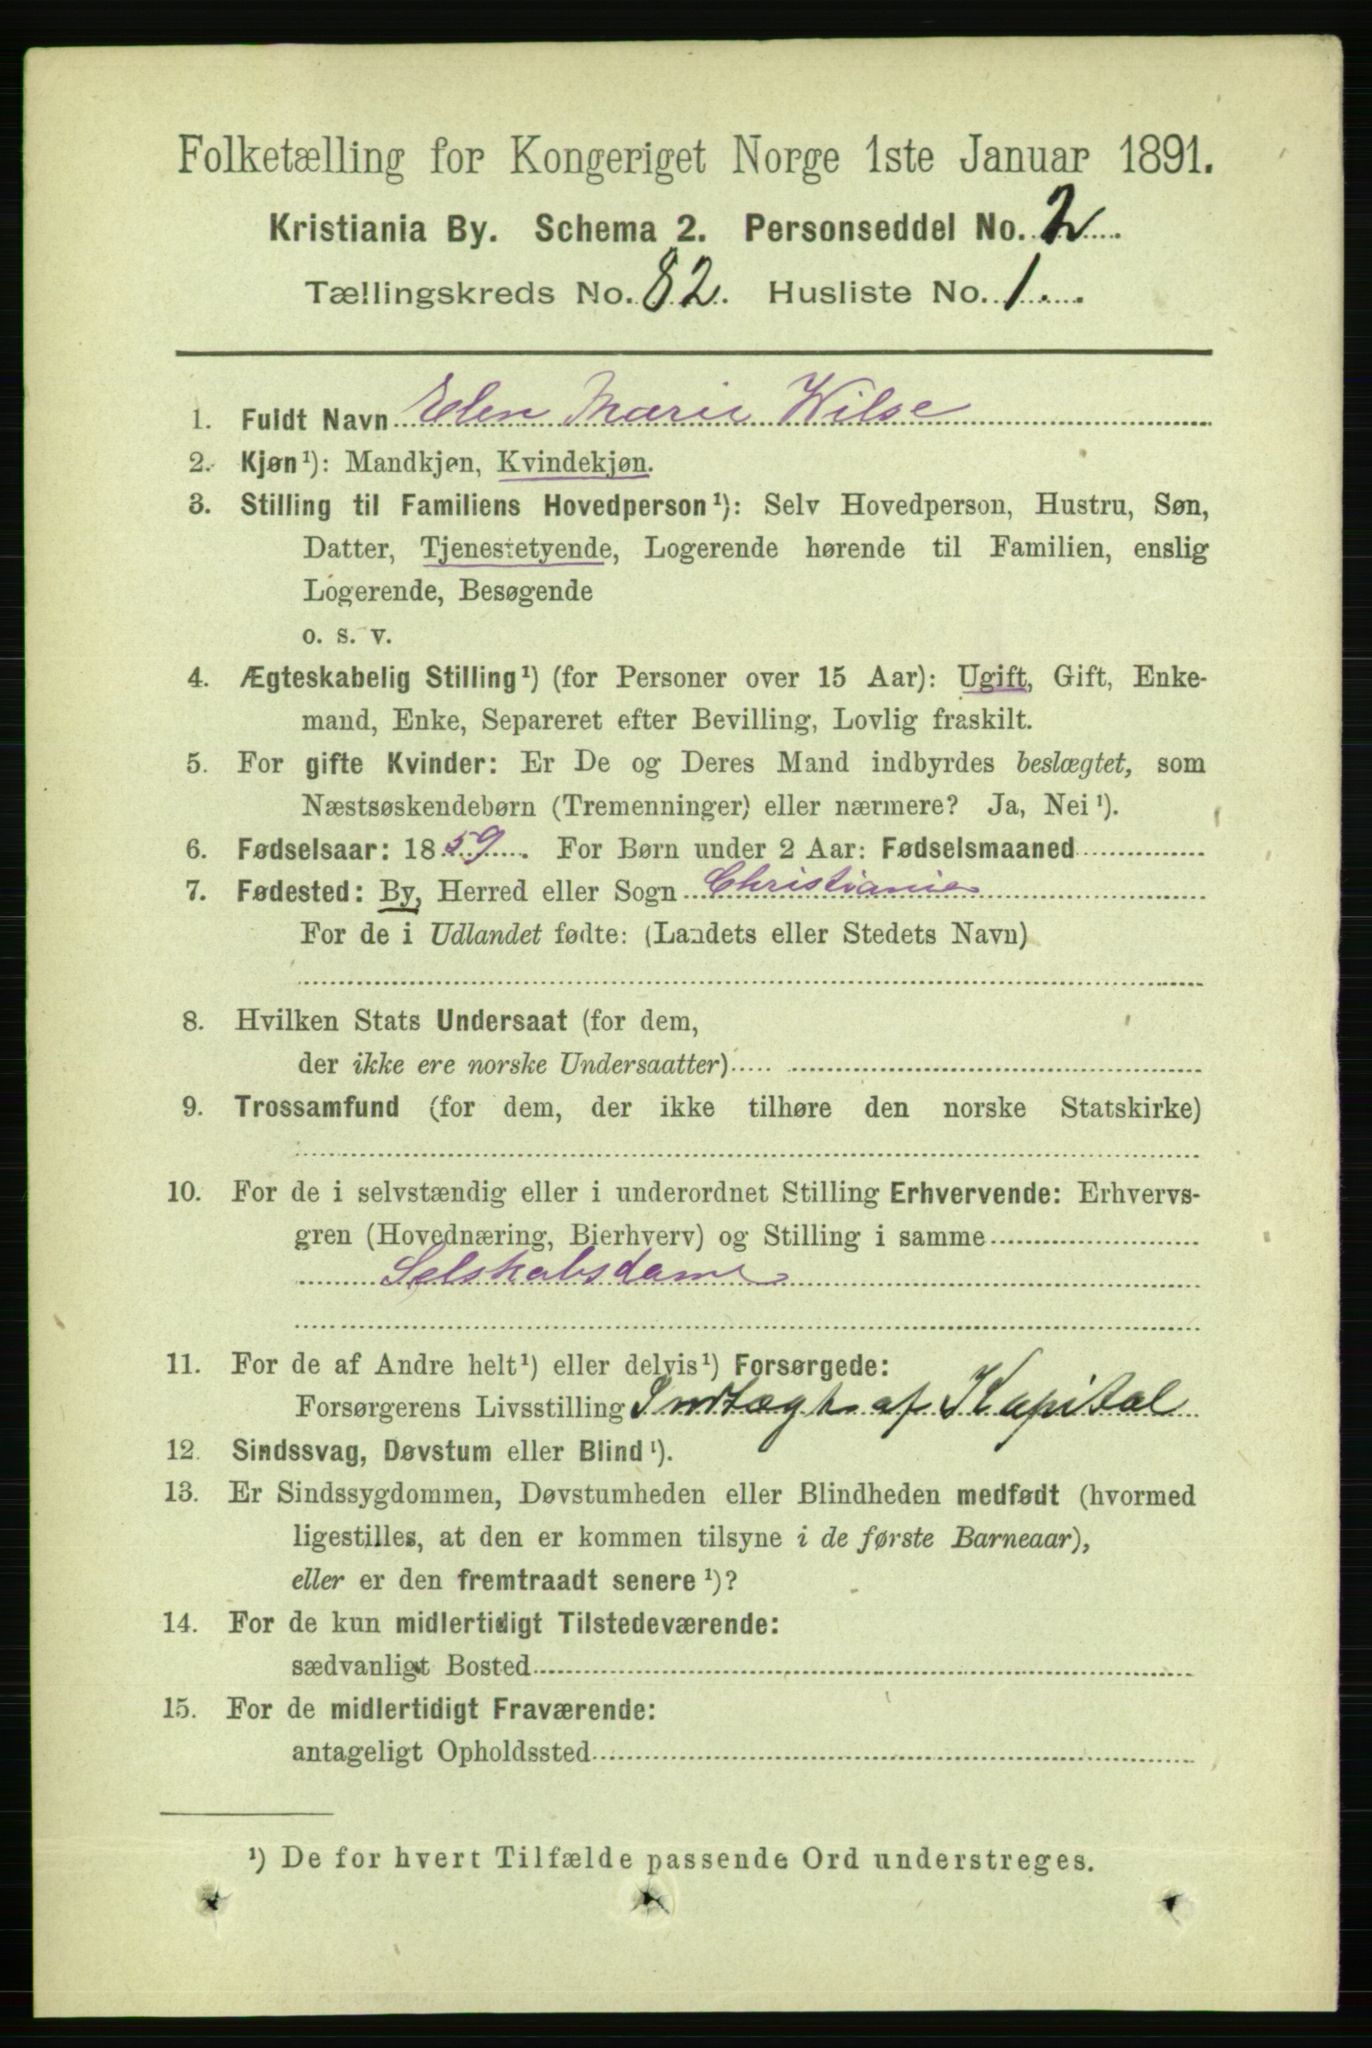 Folketælling for Kongeriget Norge 1ste Januar 1891.
Kristiania By. Schema 2. Personseddel No. 2
Tællingskreds No. 82. Husliste No. 1.
1. Fuldt Navn Elen Marie Wilse
2. Kjøn¹): Mandkjøn, Kvindekjøn.
3. Stilling til Familiens Hovedperson¹): Selv Hovedperson, Hustru, Søn,
Datter, Tjenestetyende, Logerende hørende til Familien, enslig
Logerende, Besøgende
o. s. v.
4. Ægteskabelig Stilling¹) (for Personer over 15 Aar): Ugift, Gift, Enke-
mand, Enke, Separeret efter Bevilling, Lovlig fraskilt.
5. For gifte Kvinder: Er De og Deres Mand indbyrdes beslægtet, som
Næstsøskendebørn (Tremenninger) eller nærmere? Ja, Nei¹).
6. Fødselsaar: 1859. For Børn under 2 Aar: Fødselsmaaned
7. Fødested: By, Herred eller Sogn Christiania
For de i Udlandet fødte: (Landets eller Stedets Navn)
8. Hvilken Stats Undersaat (for dem,
der ikke ere norske Undersaatter)
9. Trossamfund (for dem, der ikke tilhøre den norske Statskirke)
10. For de i selvstændig eller i underordnet Stilling Erhvervende: Erhvervs-
gren (Hovednæring, Bierhverv) og Stilling i samme
Selskabsdame
11. For de af Andre helt¹) eller delvis¹) Forsørgede:
Forsørgerens Livsstilling Indtægt af Kapital
12. Sindssvag, Døvstum eller Blind¹).
13. Er Sindssygdommen, Døvstumheden eller Blindheden medfødt (hvormed
ligestilles, at den er kommen tilsyne i de første Barneaar),
eller er den fremtraadt senere¹)?
14. For de kun midlertidigt Tilstedeværende:
sædvanligt Bosted
15. For de midlertidigt Fraværende:
antageligt Opholdssted
¹) De for hvert Tilfælde passende Ord understreges.